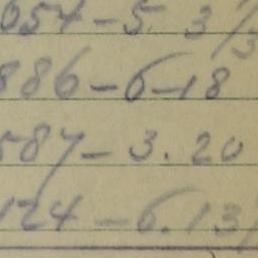 054-5.3/3
886-6-18
587-3.20
124-6.13/